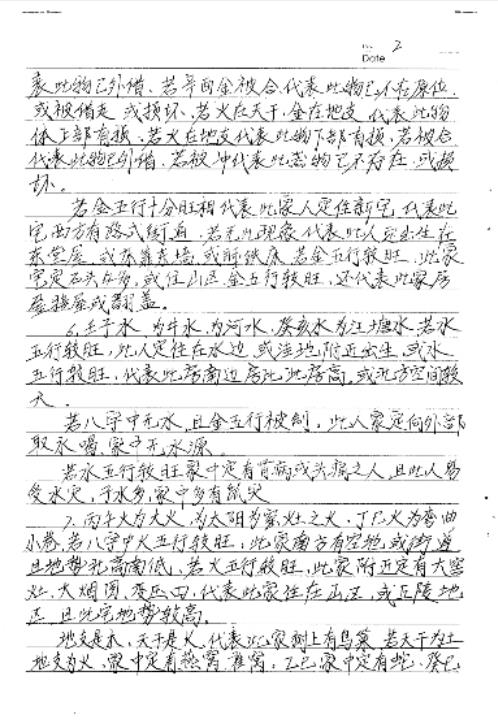 No. 2
Date
表此物已外借、若年四金被合代表此物已不在原位
或被借走 或损坏、若火在天干、金在地支 代表此物
体上部有损、若火在地支代表此物下部有损、若被合
代表此物已外借、若被冲代表此物已不存在、或损
坏。
若金五行十分旺相代表此家人定住新宅、代表此
宅西方有路或街道、若无此现象代表此人定出生在
东堂屋、或 若金五行较旺、此家
宅定石头在多、或住山区、金五行较旺、还代表此家房
屋 屋或翻盖。
6、壬子水、为井水、为河水、癸亥水为江塘水、若水
五行较旺、此人定住在水边、或洼地附近出生、或水
五行较旺、代表此房南边房比此房高、或北方空间较
大。
若八字中无水、且金五行被制、此人家定向外部
取水喝、家中无水源。
若水五行较旺家中定有肾病或头痛之人、且此人易
受水灾、子水多、家中多有鼠灾
7、丙午火为大火、为太阳为窑灶之火、丁巳火为弯曲
小巷、若八字中火五行较旺、此家南方有空地、或街道
且地势北高南低、若火五行较旺、此家附近定有大窑
灶、大烟囱、 代表此家住在山区、或丘陵地
区、且此宅地势较高。
地支是木、天干是火、代表此家树上有鸟巢、若天干为土
地支为火、家中定有燕窝、雀窝、乙巳、家中定有蛇、癸巳、